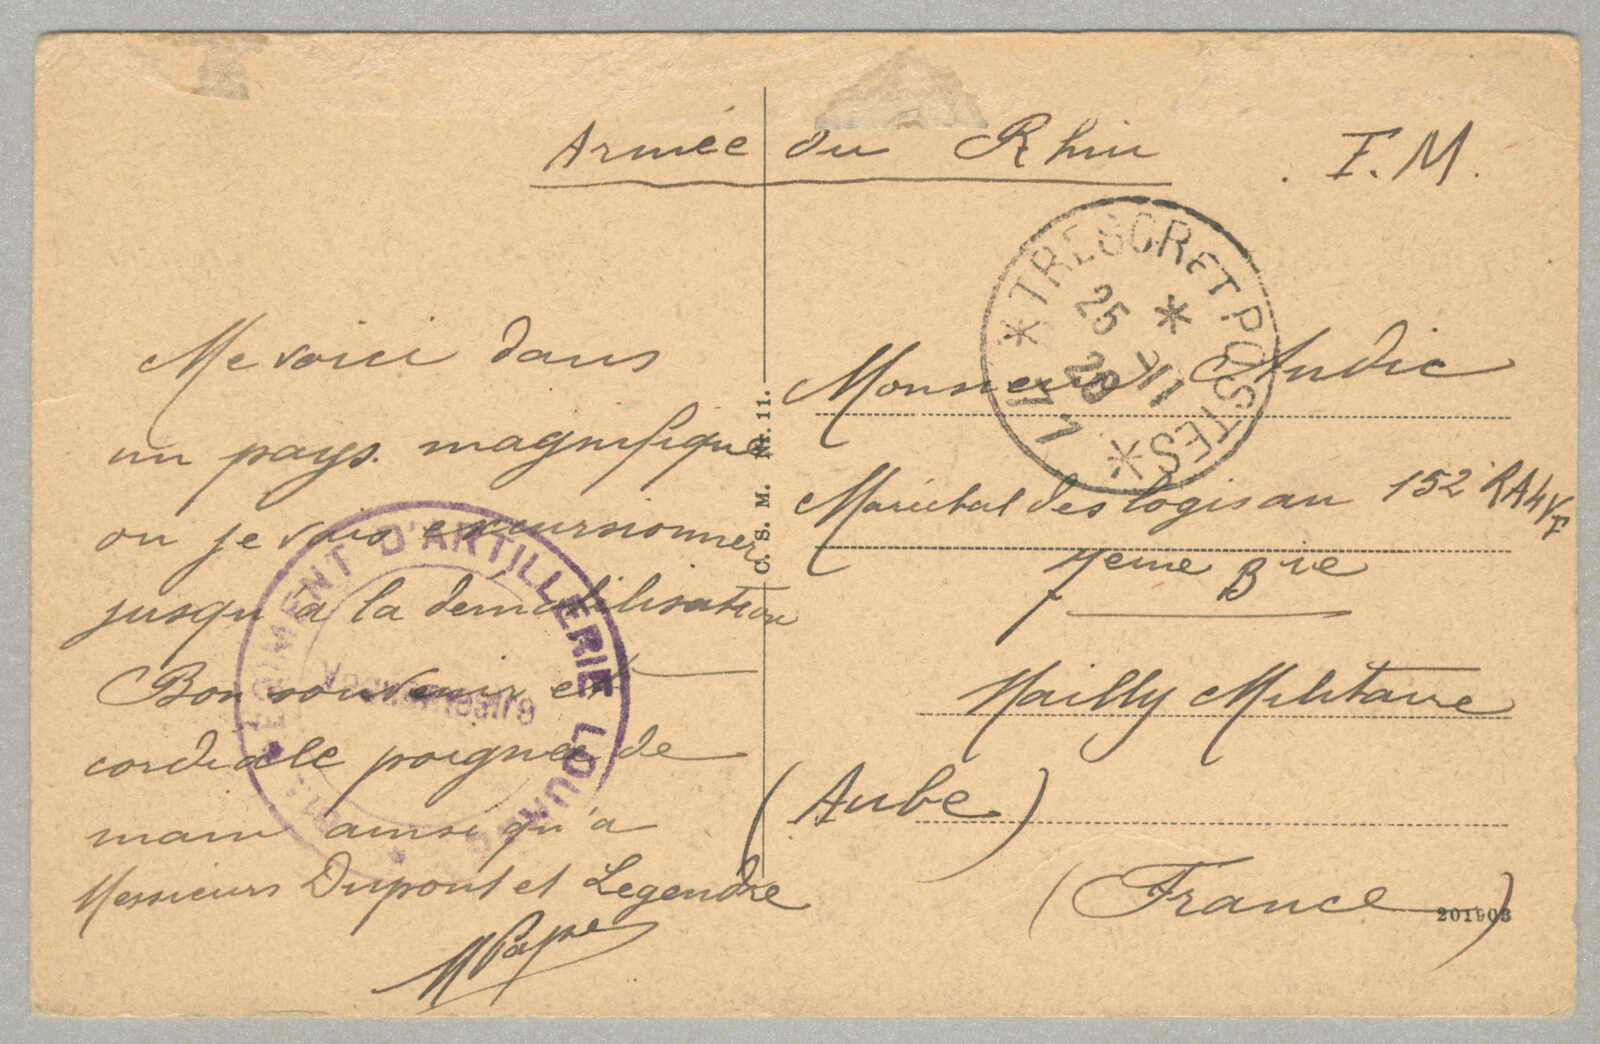 Armée du Rhin
F. M.
Me voici dans
un pays magnifique
ou je vais excursionner
jusqu'à la démobilisation
Bon souvenir et
cordiale poignée de
main ainsi qu'à
Messieurs Dupont et Legendre
M Pape
RÉGIMENT D'ARTILLERIE LOURDE
Vaguemestre
C. S. M. Fr. 11.
* TRESOR ET POSTES *
25
11
20
* 177 *
Monsieur Andic
Maréchal des logis au 152 RALVF
7eme Bie
Mailly Militaire
(Aube)
(France)
201903